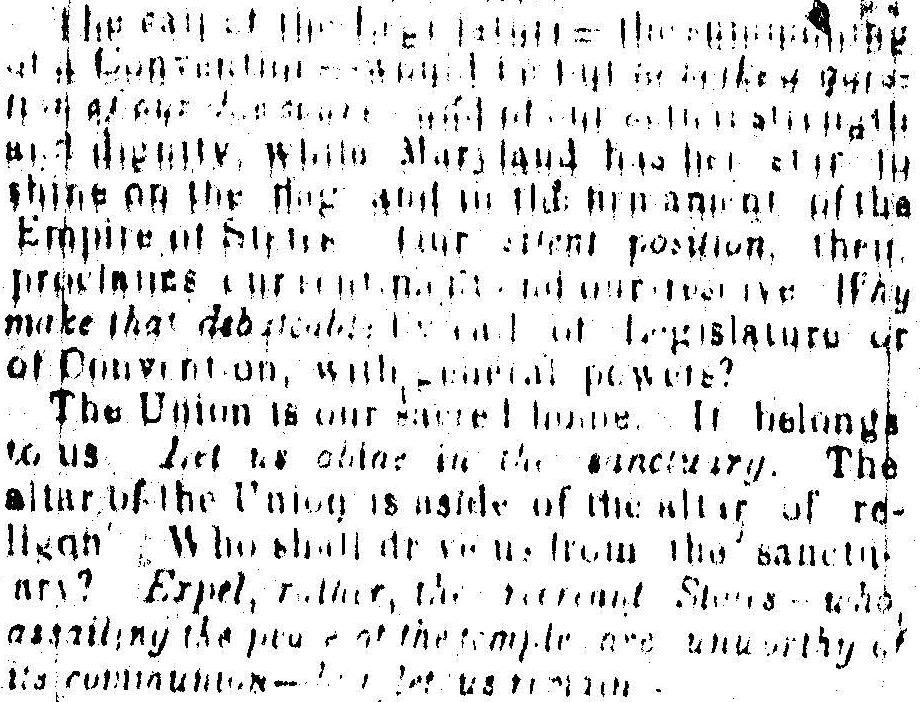 The call of the Legislature—the summoning
of a Convention—would be but to make a ques-
tion of our
and dignity, while Maryland has her star to
shine on the flag and in the firmament of the
Empire of States. Our silent position, then,
proclaims our contentment and our reserve. Why
make that debateable by call of Legislature or
of Convention, with general powers?
The Union is our sacred home. It belongs
to us. Let us abide in the sanctuary. The
altar of the Union is aside of the altar of re-
ligon. Who shall drive us from the sanctu-
ary? Expel, rather, the recreant States—who,
assailing the peace of the temple are unworthy of
its communion—but let us remain.